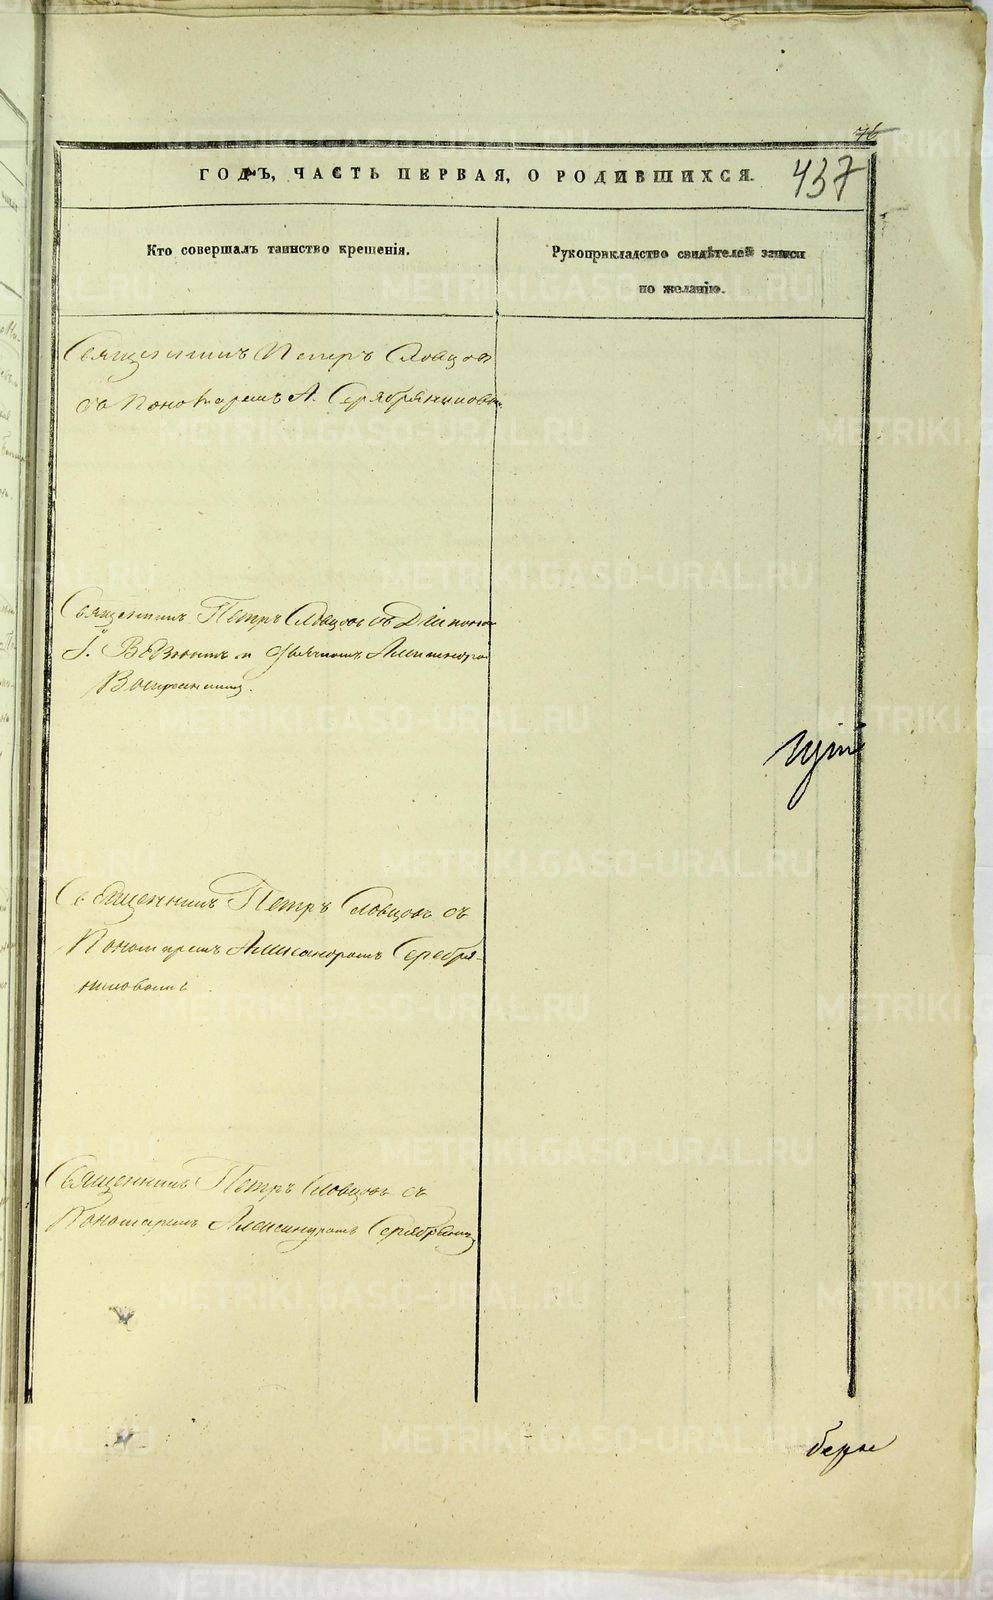 76
437
ГОДЪ, ЧАСТЬ ПЕРВАЯ, О РОДИВШИХСЯ.
Кто совершалъ таинство крещенія.
Рукоприкладство свидѣтелей записи
по желанію.
Священникъ Петръ Словцовъ
съ Пономаремъ А. Серебрянниковы
Священникъ Петръ Словцовъ съ Діакономъ
І. и Александръ
Священникъ Петръ Словцовъ съ
Пономаремъ Александромъ Серебря-
никовымъ
Священникъ Петръ Словцовъ съ
Пономаремъ Александромъ
METRIKI.GASO-URAL.RU